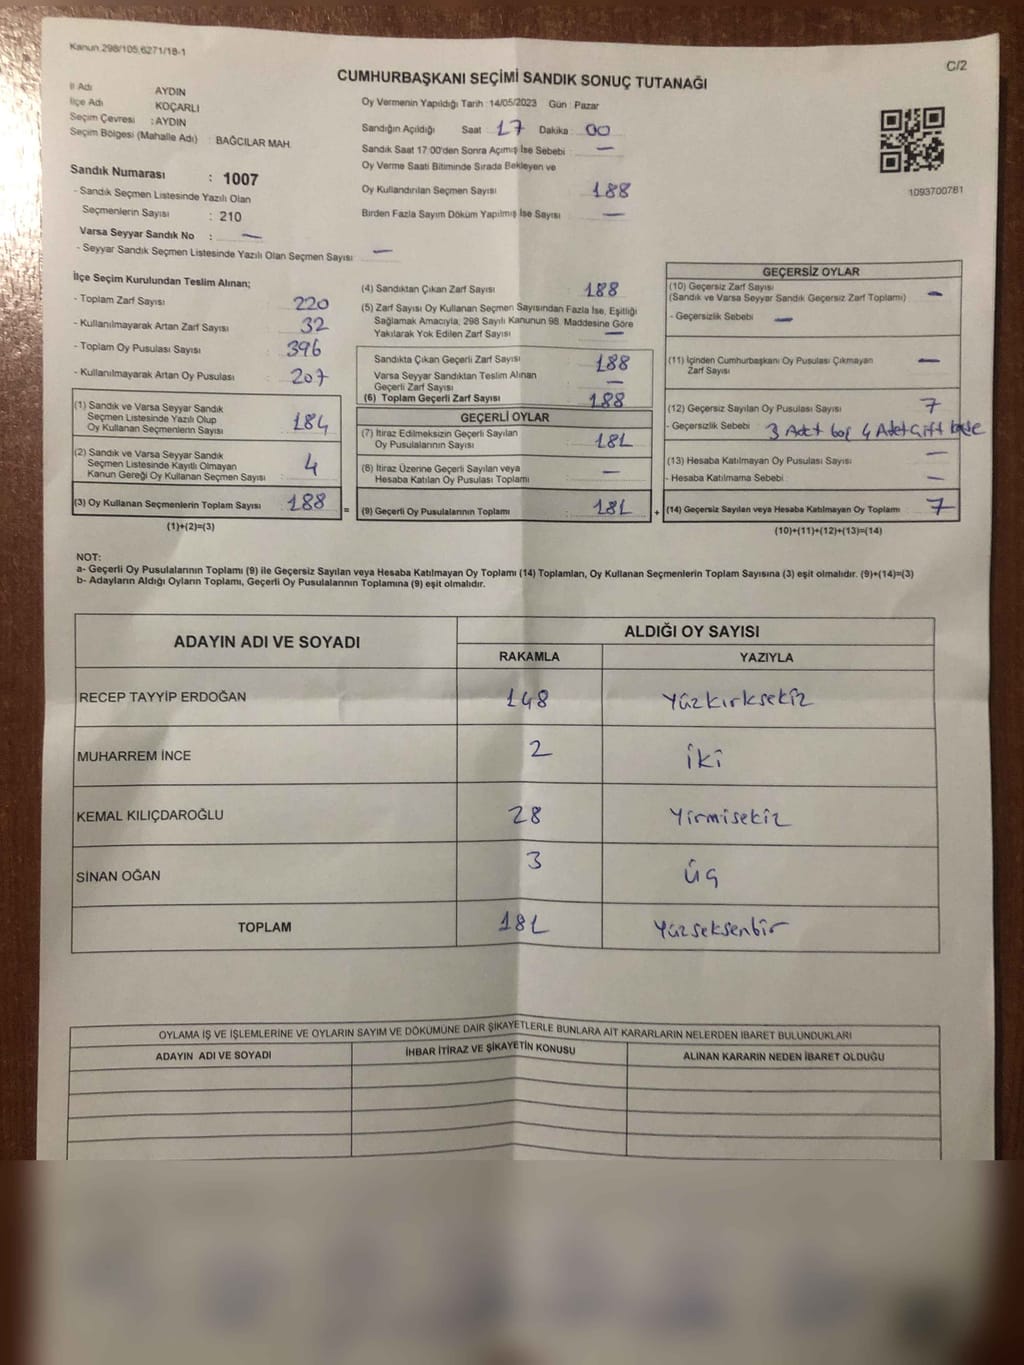 Kanun.298/105,6271/18-1
C/2
CUMHURBAŞKANI SEÇİMİ SANDIK SONUÇ TUTANAĞI
İl Adı AYDIN
İlçe Adı KOÇARLI
Seçim Çevresi : AYDIN
Seçim Bölgesi (Mahalle Adı) : BAĞCILAR MAH.
Sandık Numarası : 1007
- Sandık Seçmen Listesinde Yazılı Olan
Seçmenlerin Sayısı : 210
Varsa Seyyar Sandık No : —
- Seyyar Sandık Seçmen Listesinde Yazılı Olan Seçmen Sayısı —
Oy Vermenin Yapıldığı Tarih : 14/05/2023 Gün : Pazar
Sandığın Açıldığı Saat : 17 Dakika : 00
Sandık Saat 17:00'den Sonra Açımış İse Sebebi : —
Oy Verme Saati Bitiminde Sırada Bekleyen ve
Oy Kullandırılan Seçmen Sayısı : 188
Birden Fazla Sayım Döküm Yapılmış İse Sayısı : —
1093700781
İlçe Seçim Kurulundan Teslim Alınan;
- Toplam Zarf Sayısı : 220
- Kullanılmayarak Artan Zarf Sayısı : 32
- Toplam Oy Pusulası Sayısı : 396
- Kullanılmayarak Artan Oy Pusulası : 207
(1) Sandık ve Varsa Seyyar Sandık
Seçmen Listesinde Yazılı Olup
Oy Kullanan Seçmenlerin Sayısı : 184
(2) Sandık ve Varsa Seyyar Sandık
Seçmen Listesinde Kayıtlı Olmayan
Kanun Gereği Oy Kullanan Seçmen Sayısı : 4
(3) Oy Kullanan Seçmenlerin Toplam Sayısı : 188 =
(1)+(2)=(3)
(4) Sandıktan Çıkan Zarf Sayısı : 188
(5) Zarf Sayısı Oy Kullanan Seçmen Sayısından Fazla İse, Eşitliği
Sağlamak Amacıyla, 298 Sayılı Kanunun 98. Maddesine Göre
Yakılarak Yok Edilen Zarf Sayısı : —
Sandıkta Çıkan Geçerli Zarf Sayısı : 188
Varsa Seyyar Sandıktan Teslim Alınan
Geçerli Zarf Sayısı : —
(6) Toplam Geçerli Zarf Sayısı : 188
GEÇERLİ OYLAR
(7) İtiraz Edilmeksizin Geçerli Sayılan
Oy Pusulasının Sayısı : 181
(8) İtiraz Üzerine Geçerli Sayılan veya
Hesaba Katılan Oy Pusulası Toplamı : —
(9) Geçerli Oy Pusulalarının Toplamı : 181 +
GEÇERSİZ OYLAR
(10) Geçersiz Zarf Sayısı
(Sandık ve Varsa Seyyar Sandık Geçersiz Zarf Toplamı) : —
- Geçersizlik Sebebi : —
(11) İçinden Cumhurbaşkanı Oy Pusulası Çıkmayan
Zarf Sayısı : —
(12) Geçersiz Sayılan Oy Pusulası Sayısı : 7
- Geçersizlik Sebebi : 3 Adet boş 4 Adet Çift
(13) Hesaba Katılmayan Oy Pusulası Sayısı : —
- Hesaba Katılmama Sebebi : —
(14) Geçersiz Sayılan veya Hesaba Katılmayan Oy Toplamı : 7
(10)+(11)+(12)+(13)=(14)
NOT:
a- Geçerli Oy Pusulalarının Toplamı (9) ile Geçersiz Sayılan veya Hesaba Katılmayan Oy Toplamı (14) Toplamları, Oy Kullanan Seçmenlerin Toplam Sayısına (3) eşit olmalıdır. (9)+(14)=(3)
b- Adayların Aldığı Oyların Toplamı, Geçerli Oy Pusulalarının Toplamına (9) eşit olmalıdır.
ADAYIN ADI VE SOYADI ALDIĞI OY SAYISI
RAKAMLA YAZIYLA
RECEP TAYYİP ERDOĞAN 148 Yüzkırksekiz
MUHARREM İNCE 2 iki
KEMAL KILIÇDAROĞLU 28 Yirmisekiz
SİNAN OĞAN 3 üç
TOPLAM 181 Yüzseksenbir
OYLAMA İŞ VE İŞLEMLERİNE VE OYLARIN SAYIM VE DÖKÜMÜNE DAİR ŞİKAYETLERLE BUNLARA AİT KARARLARIN NELERDEN İBARET BULUNDUKLARI
ADAYIN ADI VE SOYADI İHBAR İTİRAZ VE ŞİKAYETİN KONUSU ALINAN KARARIN NEDEN İBARET OLDUĞU